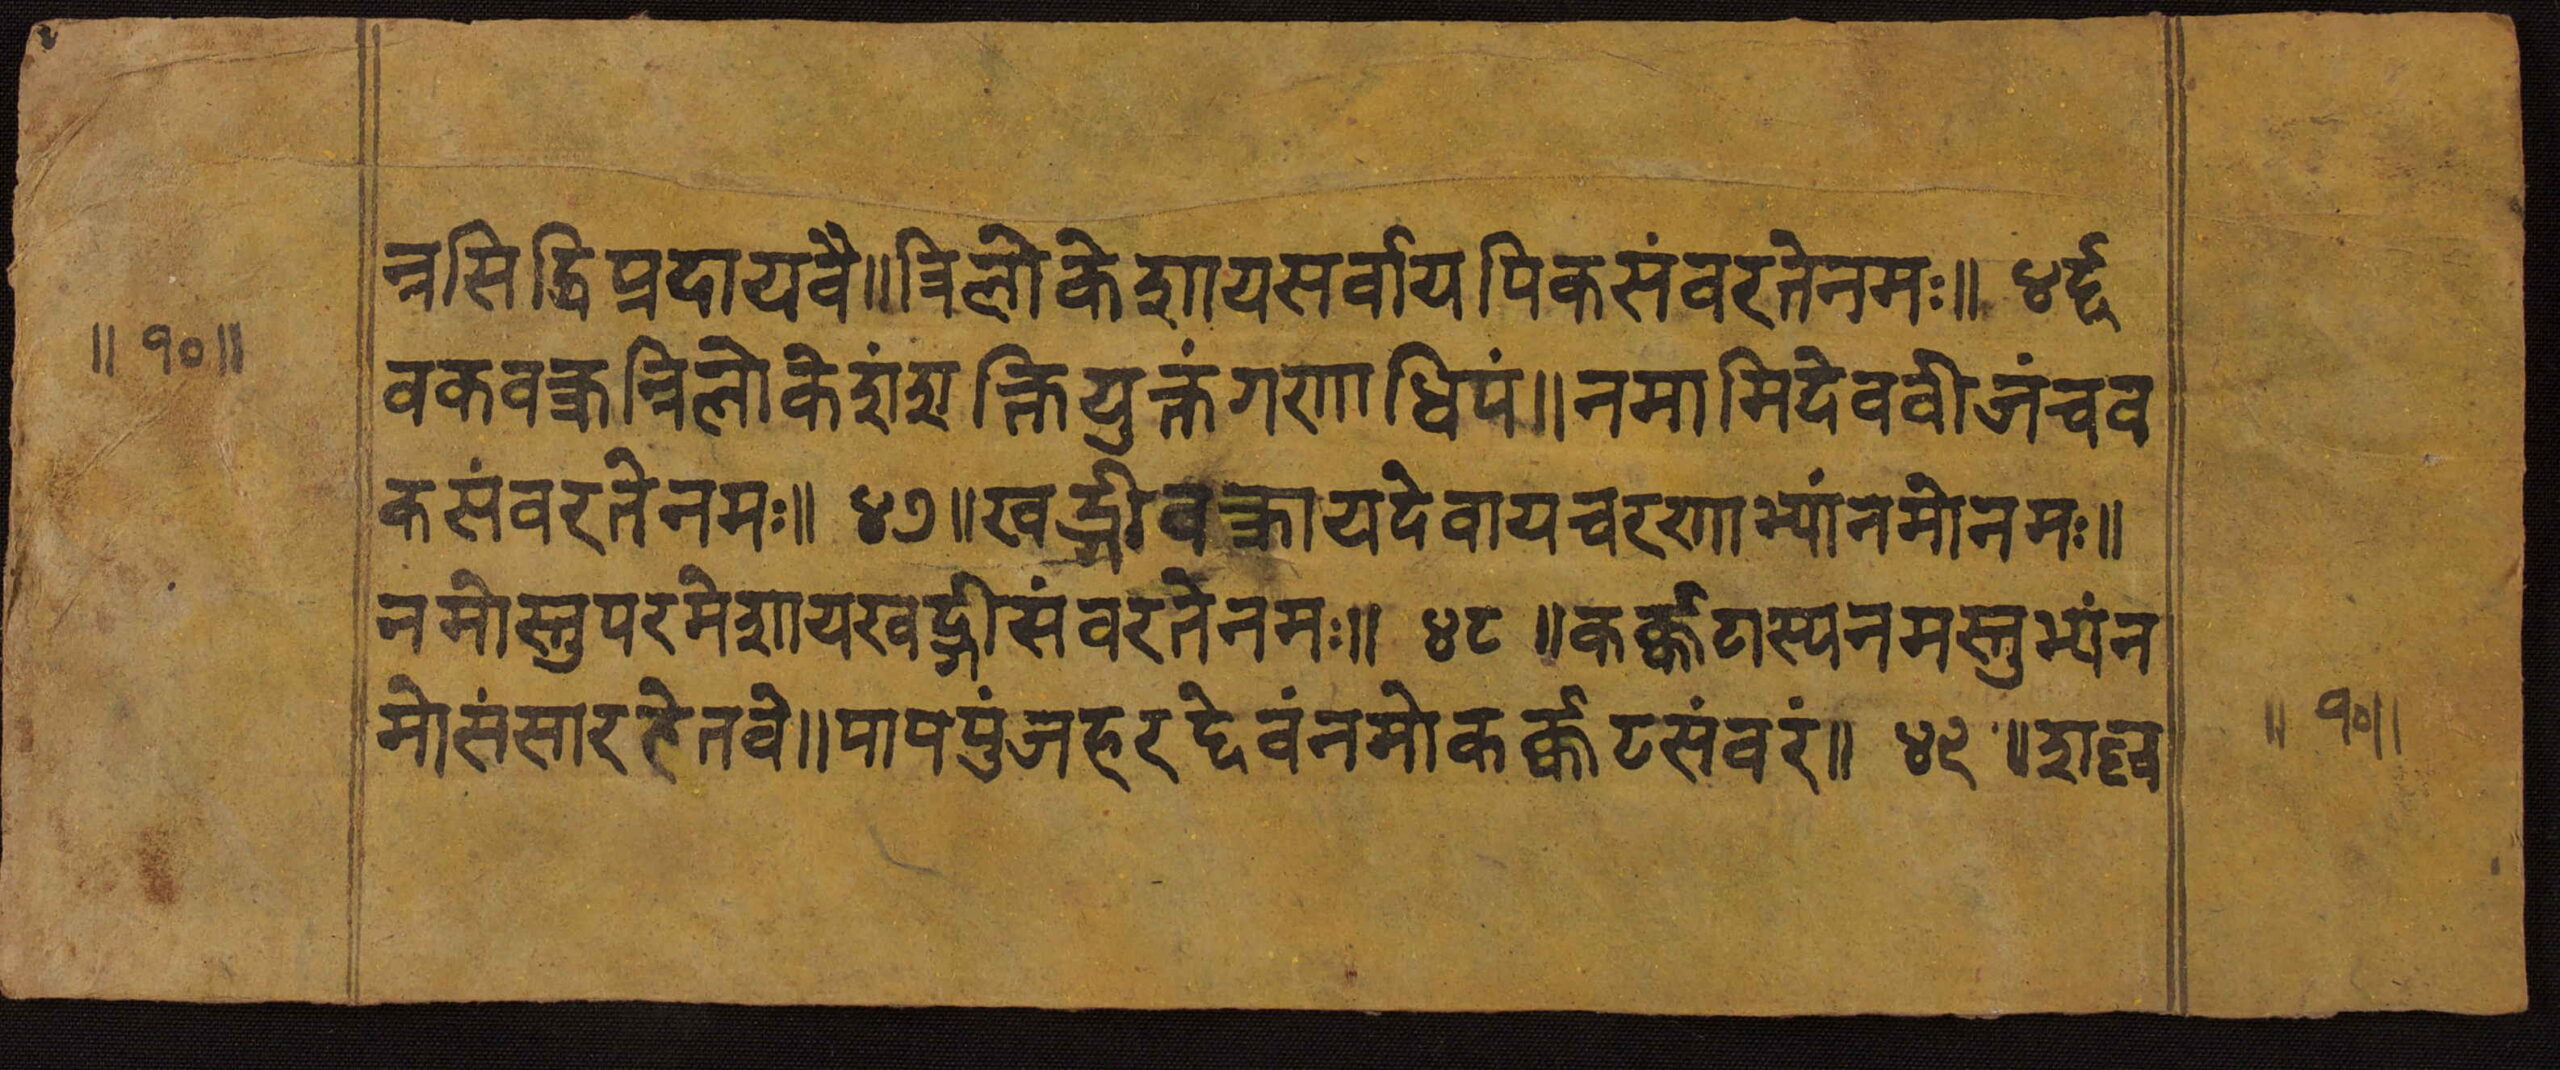 न्त्रसिद्धिप्रदायवै॥त्रिलोकेशायसर्वायपिकसंवरतेनमः॥ ४६॥
॥ १०॥
वकवक्त्रत्रिलोकेशंशक्तियुक्तंगणाधिपं॥नमामिदेववीजंचव
कसंवरतेनमः॥ ४७॥खड्गीवक्त्रायदेवायचरणाभ्यांनमोनमः॥
नमोस्तुपरमेशायखड्गीसंवरतेनमः॥ ४८ ॥कर्क्कटास्यनमस्तुभ्यंन
मोसंसारहेतवे॥पापपुंजहरद्देवंनमोकर्क्कटसंवरं॥ ४९ ॥
॥ १०॥